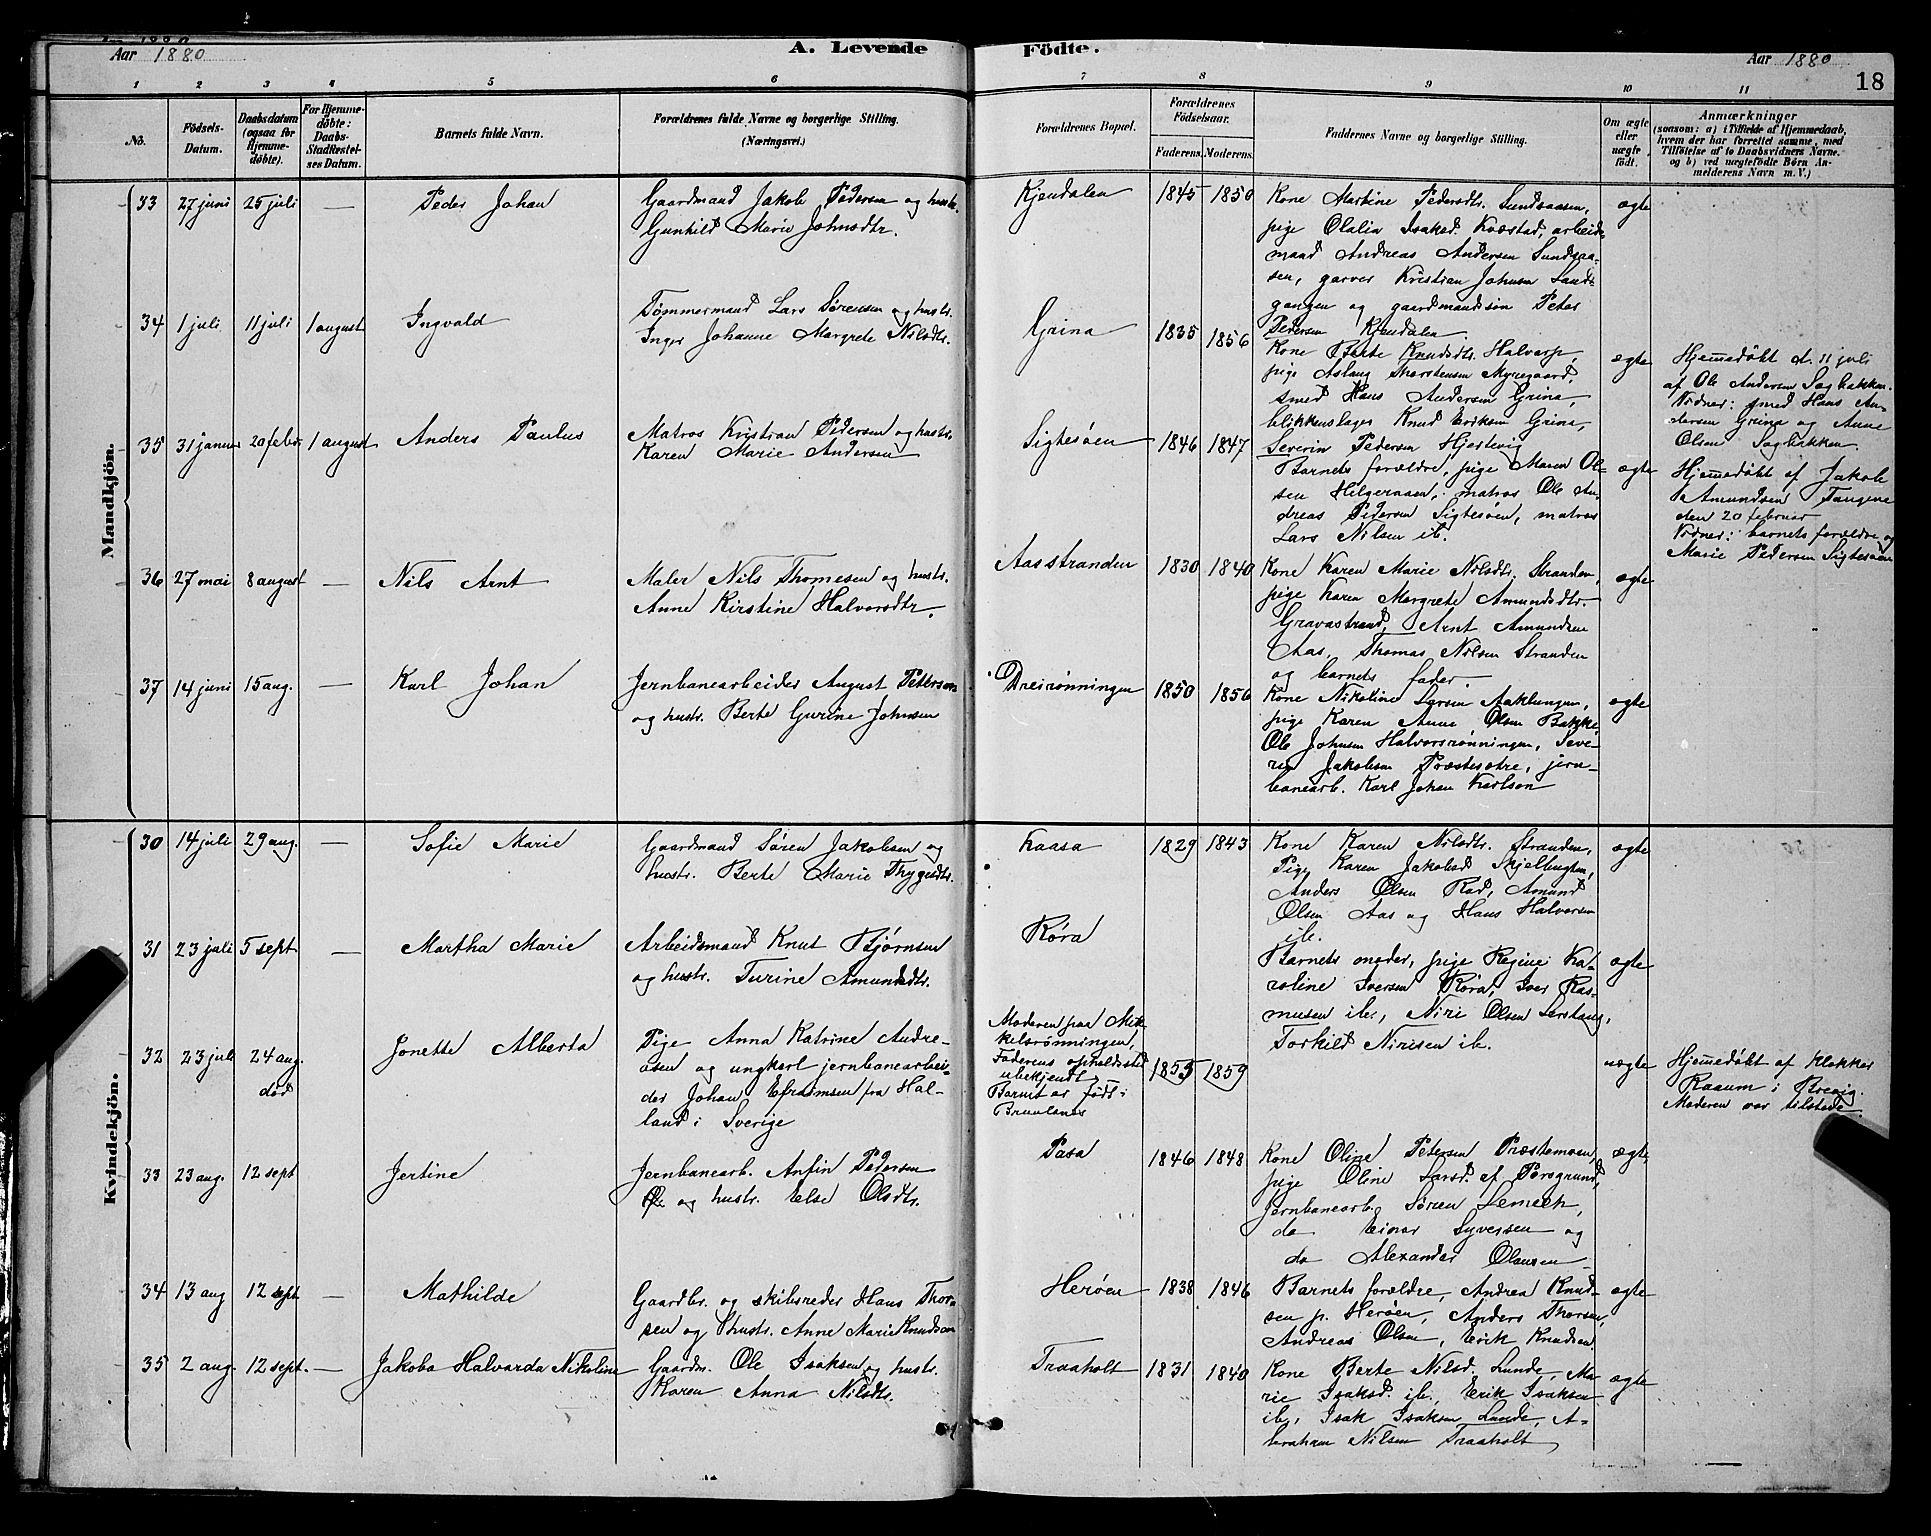 Aar 1880
A. Levende
Födte.
Aar 1880
18
1 2 3 4 5 6 7 8 9 10 11
No.
Födsels-Datum.
Daabsdatum (ogsaa for Hjemme-döbte).
For Hjemme-döbte: Daabs-Stadfæstel-ses Datum.
Barnets fulde Navn.
Forældrenes fulde Navne og borgerlige Stilling.
(Næringsvei.)
Forældrenes Bopæl.
Forældrenes Födselsaar.
Faderens. Moderens.
Faddernes Navne og borgerlige Stilling.
Om ægte eller uægte födt.
Anmærkninger
(saasom: a) i Tilfælde af Hjemmedaab,
hvem der har forrettet samme, med
Tilföielse af to Daabsvidners Navne.
og b) ved uægtefödte Börn An-
melderens Navn m. V.)
Mandkjön.
33 27 juni 25 juli — Peder Johan
Gaardmand Jakob Pedersen og hustr.
Gunhild Marie Johnsdtr.
Kjendalen 1845 1850
Kone Martine Pedersdtr. Sundsaasen,
pige Olalia Isaksd. Kvæstad, arbeids-
mand Andreas Andersen Sundsaa-
sen, garver Kristian Johnsen Land-
gangen og gaardmandssøn Peter
Pedersen Kjendalen
ægte
34 1 juli 11 juli 1 august Ingvald
Tømmermand Lars Sørensen og hustr.
Inger Johanne Margrete Nilsdtr.
Grina 1835 1856
Kone Berte Knudsdtr. Halvarp,
pige Aslaug Thorstensen Myregaard,
smed Hans Andersen Grina,
blikkenslager Knud Eriksen Grina,
Severin Pedersen Hjertevig
ægte
Hjemmedøbt d. 11 juli
af Ole Andersen Sagbakken.
Vidner: smed Hans An-
dersen Grina og Anne
Olsen Sagbakken.
35 31 januar 20 febr. 1 august Anders Paulus
Matros Kristian Pedersen og hustr.
Karen Marie Andersen
Sigtesøen 1846 1847
Barnets forældre, pige Maren Ol-
sen Helgeraaen, matros Ole An-
dreas Pedersen Sigtesøen, matros
Lars Nilsen ib.
ægte
Hjemmedøbt af Jakob
Amundsen Tangene
den 20 februar
Vidner: barnets forældre og
Marie Pedersen Sigtesøen
36 27 mai 8 august — Nils Arnt
Maler Nils Thomesen og hustr.
Anne Kirstine Halvorsdtr.
Aasstranden 1830 1840
Kone Karen Marie Nilsdtr. Stranden,
pige Karen Margrete Amundsdtr.
Gravastrand, Arnt Amundsen
Aas, Thomas Nilsen Stranden
og barnets fader.
ægte
37 14 juni 15 aug. — Karl Johan
Jernbanearbeider August Peterson
og hustr. Berte Gurine Johnsen
Dreirønningen 1850 1856
Kone Nikoline Larsen Aaklungen,
pige Karen Anne Olsen Bakke,
Ole Johnsen Halvorsrønningen, Seve-
rin Jakobsen Præstesætre, jern-
banearb. Karl Johan Karlson
ægte
Kvindekjön.
30 14 juli 29 aug. — Sofie Marie
Gaardmand Søren Jakobsen og
hustr. Berte Marie Thygesdtr.
Kaasa 1829 1843
Kone Karen Nilsdtr. Stranden,
Pige Karen Jakobsd Skjelbugten,
Anders Olsen Rød, Amund
Olsen Aas og Hans Halvorsen
ib.
ægte
31 23 juli 5 sept — Martha Marie
Arbeidsmand Knut Bjørnsen
og hustr. Turine Amundsdtr.
Røra
Barnets moder, pige Regine Ka-
roline Iversen Røra, Iver Ras-
musen ib., Niri Olsen Lerstang,
Torkild Nirisen ib.
ægte
32 23 juli 24 aug. død Jonette Alberta
Pige Anna Katrine Andre-
asen og ungkarl jernbanearbei-
der Johan Efraimsen fra Hal-
land i Sverige
Moderen fra Mik-
kelsrønningen,
Faderens opholdssted
ubekjendt
Barnet er født i
Brunlanes
1853 1859
uægte
Hjemmedøbt af klokker
Raaum i Brevig.
Moderen var tilstede.
33 23 aug. 12 sept — Jertine
Jernbanearb. Anfin Pedersen
og hustr. Else Olsdtr.
Pasa 1846 1848
Kone Oline Petersen Præstemoen,
pige Oline Larsd. af Porsgrund,
jernbanearb. Søren Lemech,
do Einar Syversen og
do Alexander Olausen
ægte
34 13 aug 12 sept — Mathilde
Gaardbr. og skibsreder Hans Thor-
sen og hustr. Anne Marie Knudsen
Herøen 1838 1846
Barnets forældre, Andrea Knud-
sen p. Herøen, Anders Thorsen,
Andreas Olsen, Erik Knudsen
ægte
35 2 aug. 12 sept. — Jakoba Halvarda Nikoline
Gaardm. Ole Isaksen og hustr.
Karen Anna Nilsdtr.
Traaholt 1831 1840
Kone Berte Nilsd. Lunde, Ma-
rie Isaksd. ib., Erik Isaksen
ib., Isak Isaksen Lunde, A-
braham Nilsen Traaholt
ægte